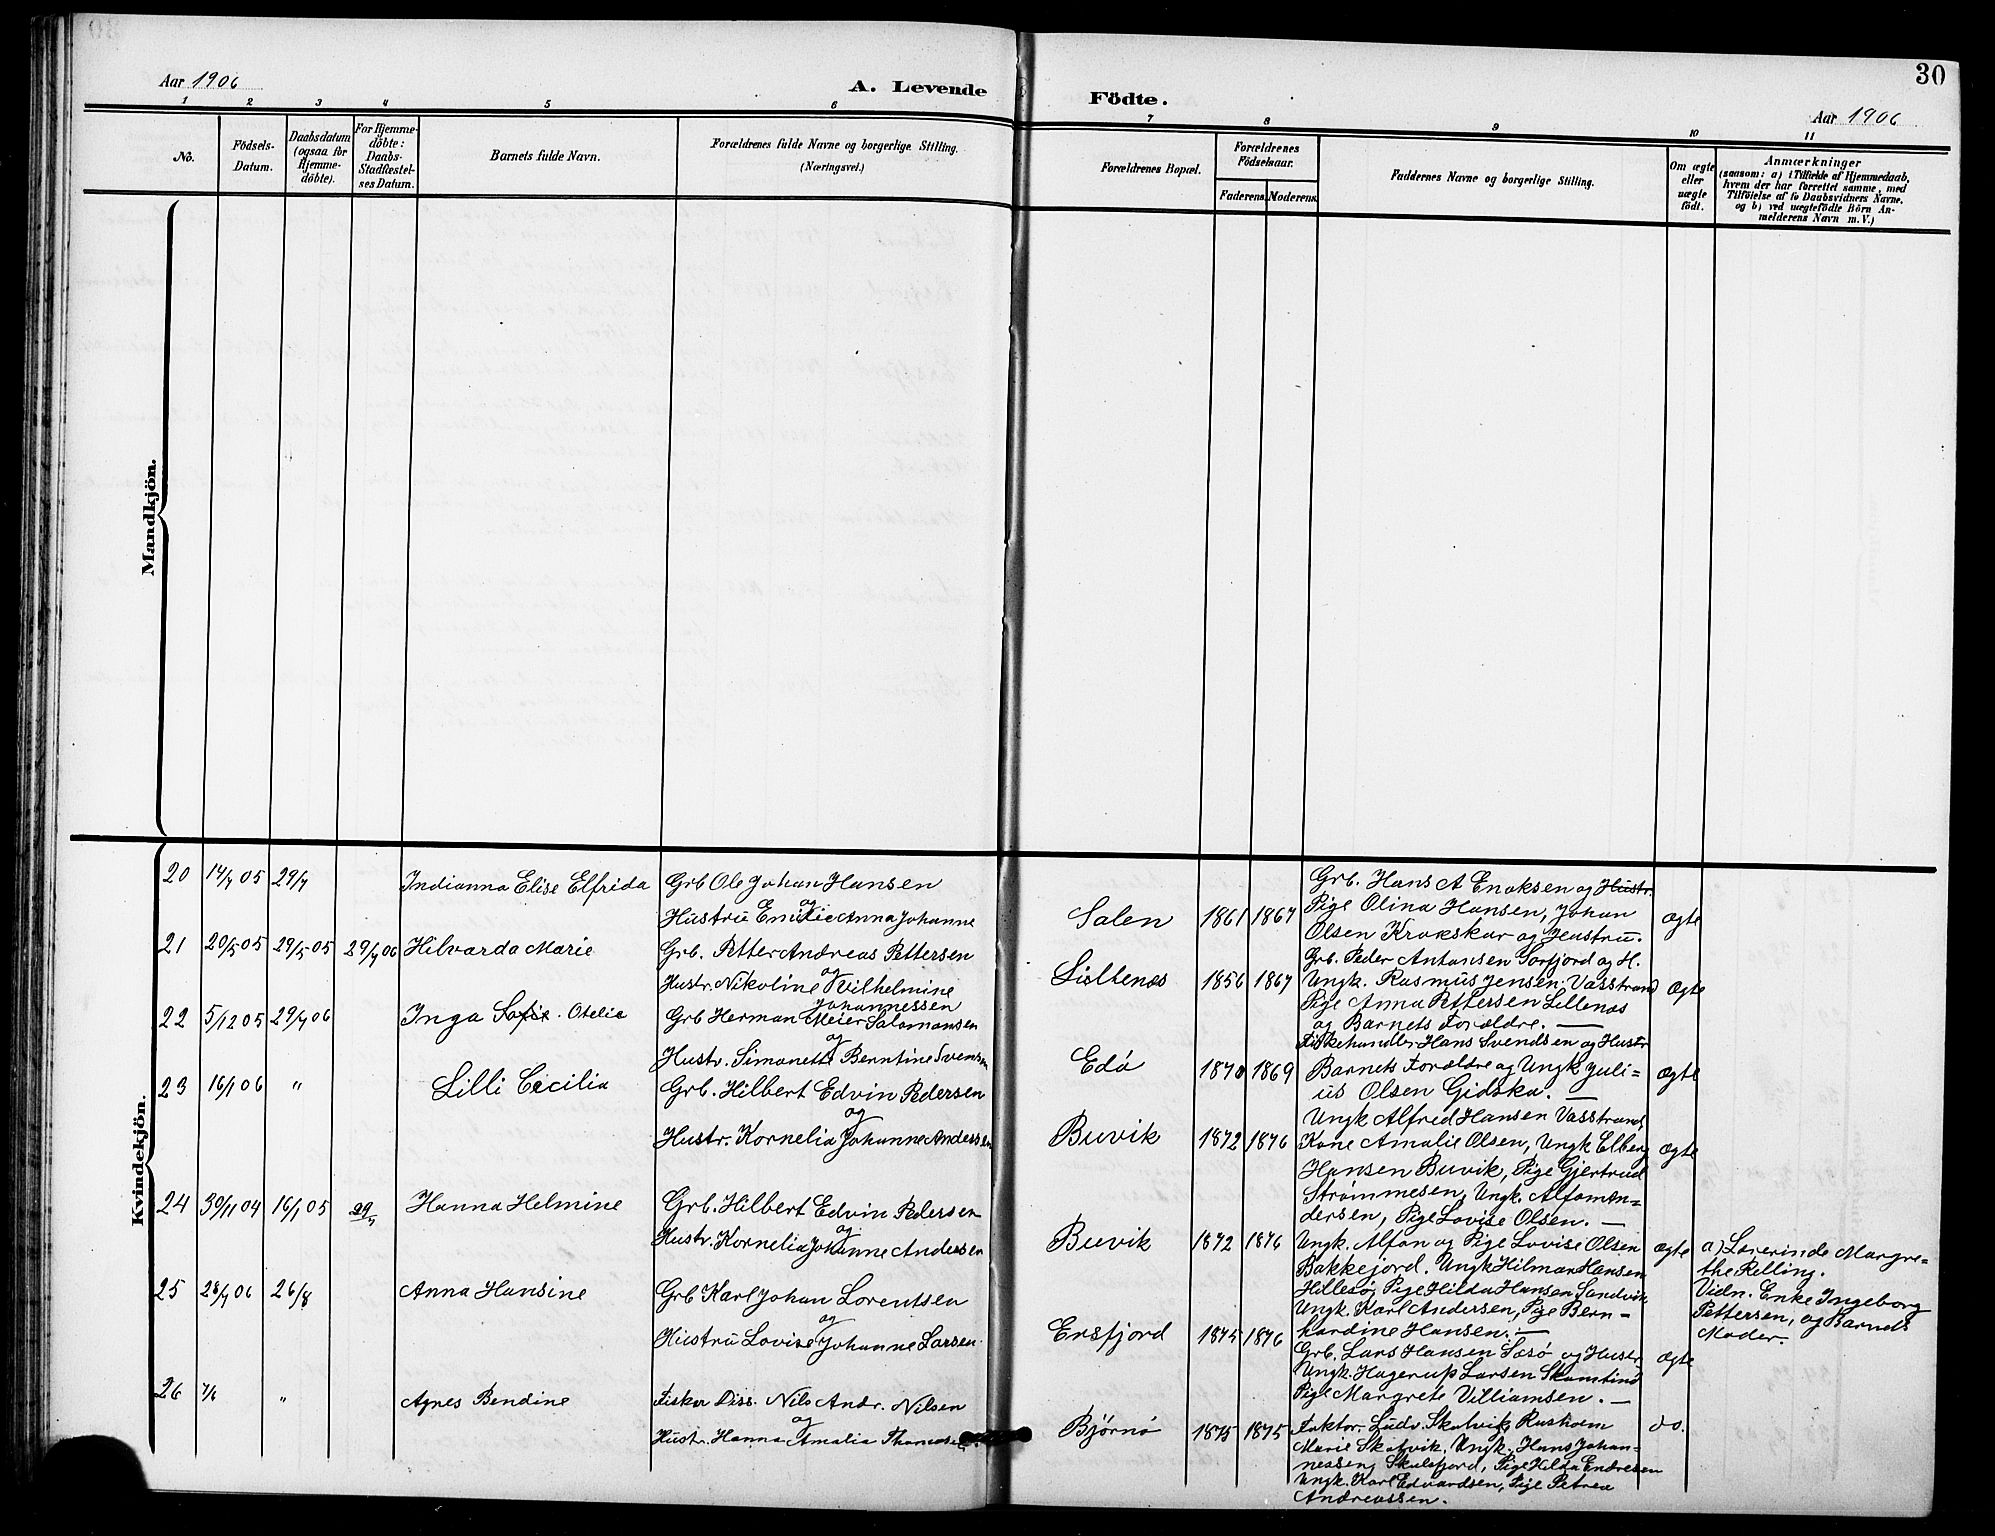 30
Aar 1906
A. Levende Födte.
Aar 1906
1 2 3 4 5 6 7 8 9 10 11
No.
Födsels-
Datum.
Daabsdatum
(ogsaa for
Hjemme-
döbte).
For Hjemme-
döbte:
Daabs-
Stadfæstel-
ses Datum.
Barnets fulde Navn.
Forældrenes fulde Navne og borgerlige Stilling.
(Næringsvei.)
Forældrenes Bopæl.
Forældrenes
Födselsaar.
Faderens. Moderens.
Faddernes Navne og borgerlige Stilling.
Om ægte
eller
uægte
födt.
Anmærkninger
(saasom: a) i Tilfælde af Hjemmedaab,
hvem der har forrettet samme, med
Tilföielse af to Daabsvidners Navne.
og b) ved uægtefödte Börn An-
melderens Navn m. V.)
Mandkjön.
Kvindekjön.
20 14/7 05 29/7 Indianna Elise Elfrida Grb Ole Johan Hansen
og
Hustru Emilie Anna Johanne
Salen 1861 1867
Grb. Hans A Enoksen og Hustr.
Pige Olina Hansen, Johan
Olsen Krokskar og Hustru.
ægte
21 20/5 05 29/5 05 29/7 06 Hilvarda Marie Grb. Petter Andreas Pettersen
og
Hustr. Nikoline Vilhelmine
Johannessen
Lillenes 1856 1867
Grb. Peder Antonsen Sorfjord og H.
Ungk. Rasmus Jensen Vasstrand
Pige Anna Pettersen Lillenes
og Barnets Forældre. —
ægte
22 5/12 05 29/7 06 Inga Sofie. Otelie Grb Herman Meier Salamonsen
og
Hustr. Simonette Berntine Svensen
Edø 1870 1869
Fiskehandler Hans Svendsen og Hustr
Barnets Forældre og Ungk Juli-
us Olsen Gidska. —
ægte
23 16/1 06 " Lilli Cecilia Grb. Hilbert Edvin Pedersen
og
Hustr. Kornelia Johanne Andersen
Buvik 1872 1876
Ungk Alfred Hansen Vasstrand
Kone Amalie Olsen, Ungk Elberg
Hansen Buvik, Pige Gjertrud
Strømmesen, Ungk. Alfon An-
dersen, Pige Lovise Olsen. —
ægte
24 30/11 04 16/1 05 29/7 Hanna Helmine Grb. Hilbert Edvin Pedersen
og
Hustr. Kornelia Johanne Andersen
Buvik 1872 1876
Ungk. Alfon og Pige Lovise Olsen
Bakkejord. Ungk Hilmar Hansen
Hillesø, Pige Hilda Hansen Sandvik
Ungk. Karl Andersen, Pige Bern-
hardine Hansen. —
ægte
a) Lærerinde Margre-
the Relling.
Vidn. Enke Ingeborg
Pettersen, og Barnets
Moder.
25 28/7 06 26/8 Anna Hansine Grb Karl Johan Lorentsen
og
Hustru Lovise Johanne Larsen.
Ersfjord 1875 1876
Grb. Lars Hansen Sæsø og Hustr.
Ungk. Hagerup Larsen Skamtind
Pige Margrete Villiamsen. —
ægte
26 7/6 " Agnes Bendine Fisker Diss. Nils Andr. Nilsen
og
Hustr. Hanna Amalia Thomasen.
Bjørnø 1875 1875
Faktor. Ludv. Skotvik, Rusholm
Marie Skotvik, Ungk. Hans Johan-
nessen, Skulsfjord, Pige Hilda Endresen
Ungk. Karl Edvardsen, Pige Petrea
Andreassen.
do.